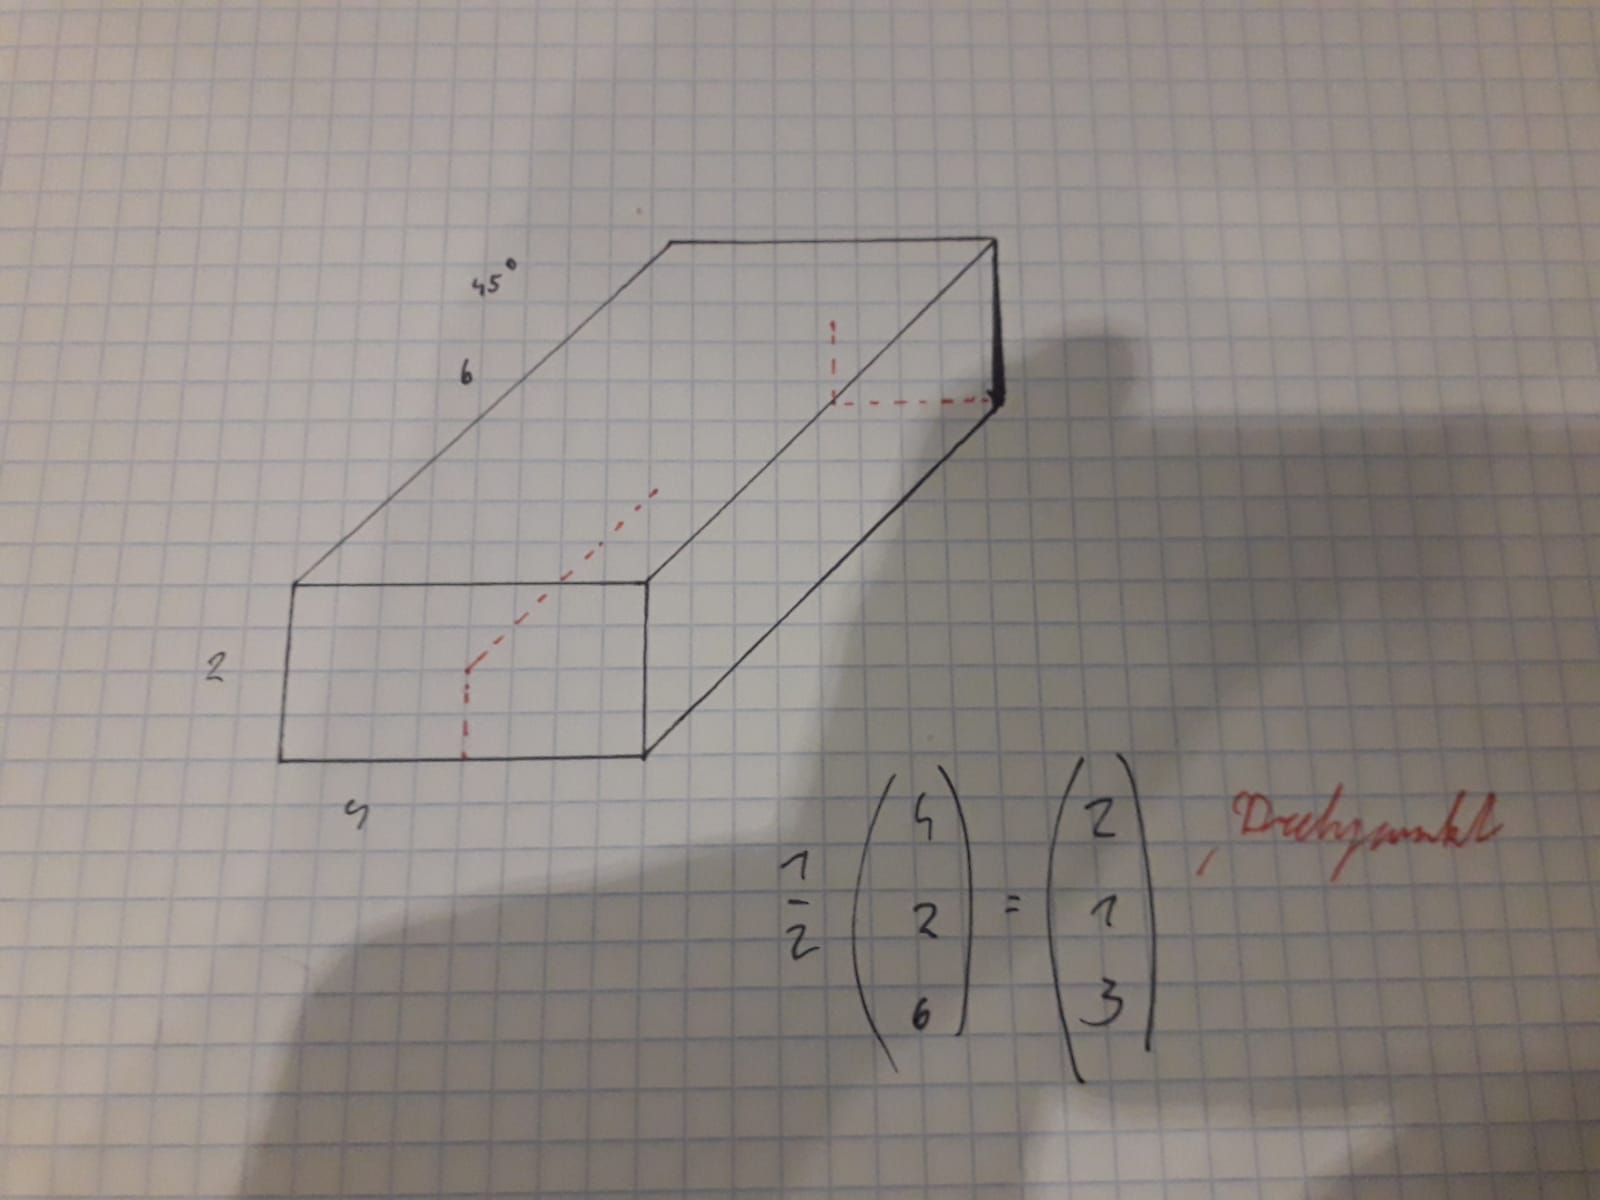 45°
6
2
4
1/2 (4 2 6) = (2 1 3) , Drehpunkt